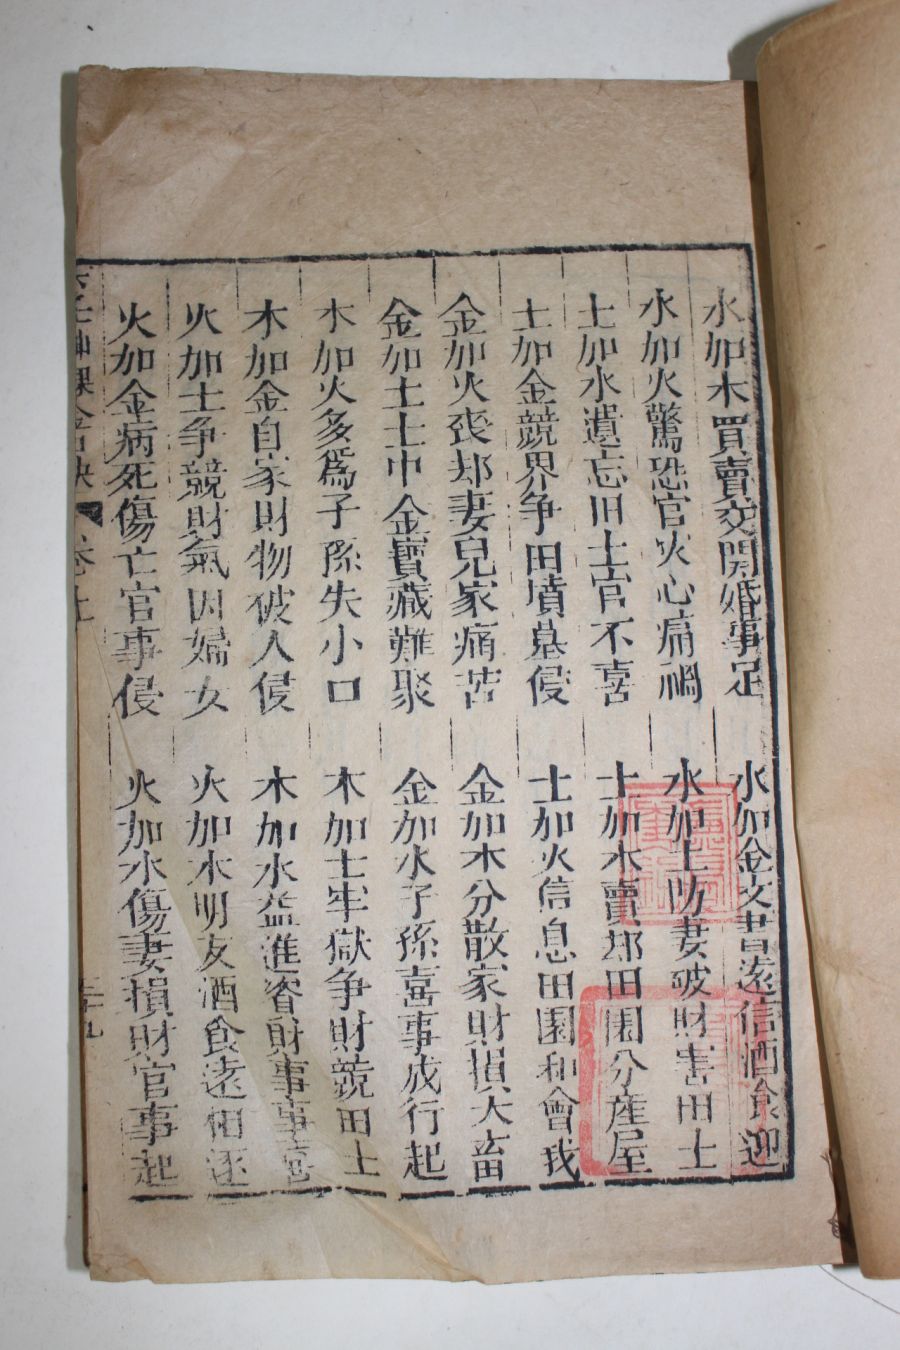 水加木買賣交開婚事定
水加金文書遠信酒食迎
水加火驚恐官災心痛禍
水加土防妻破財害田土
土加水遺忘旧土官不喜
土加木賣却田園分産屋
土加金競界争田墳墓侵
土加火信息田園和會我
金加火喪却妻兒家痛苦
金加木分散家財損大畜
金加土土中金寶藏難聚
金加水子孫喜事成行起
木加火多爲子孫失小口
木加土牢獄争財競田土
木加金自家財物被人侵
木加水益進資財事事喜
火加土争競財氣因婦女
火加木明友酒食遠相逐
火加金病死傷亡官事侵
火加水傷妻損財官事起
六壬仙課金口訣 卷上 三十九